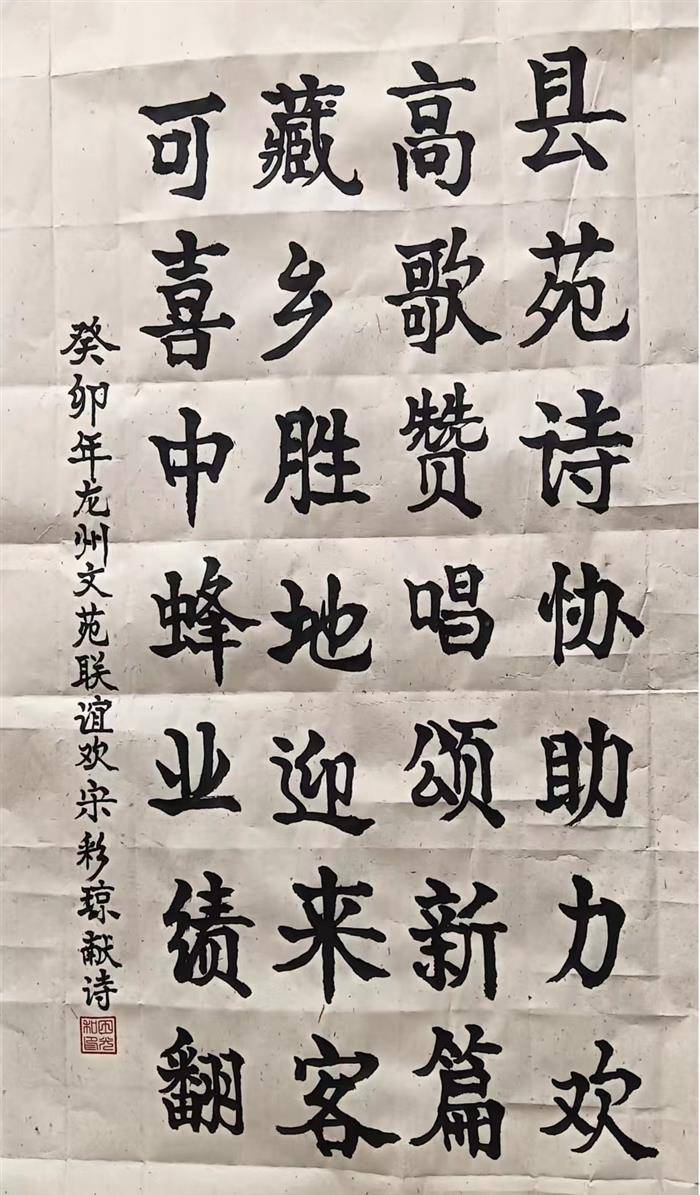 县苑诗协助力欢
高歌赞唱颂新篇
藏乡胜地迎来客
可喜中蜂业绩翻
癸卯年龙州文苑联谊欢宋彩琼献诗